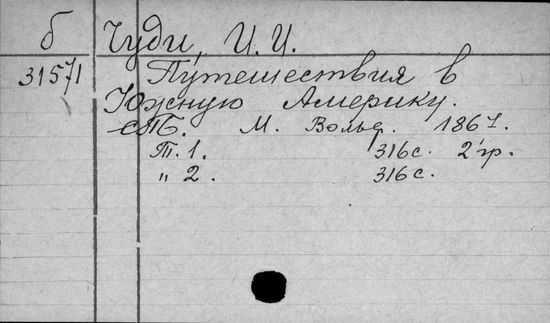 б Чуди, И. И.
31571 Путешествия в
Южную Америку.
СПБ. М. Вольф. 1867.
Т. 1. 316 с. 2 гр.
„ 2. 316 с.